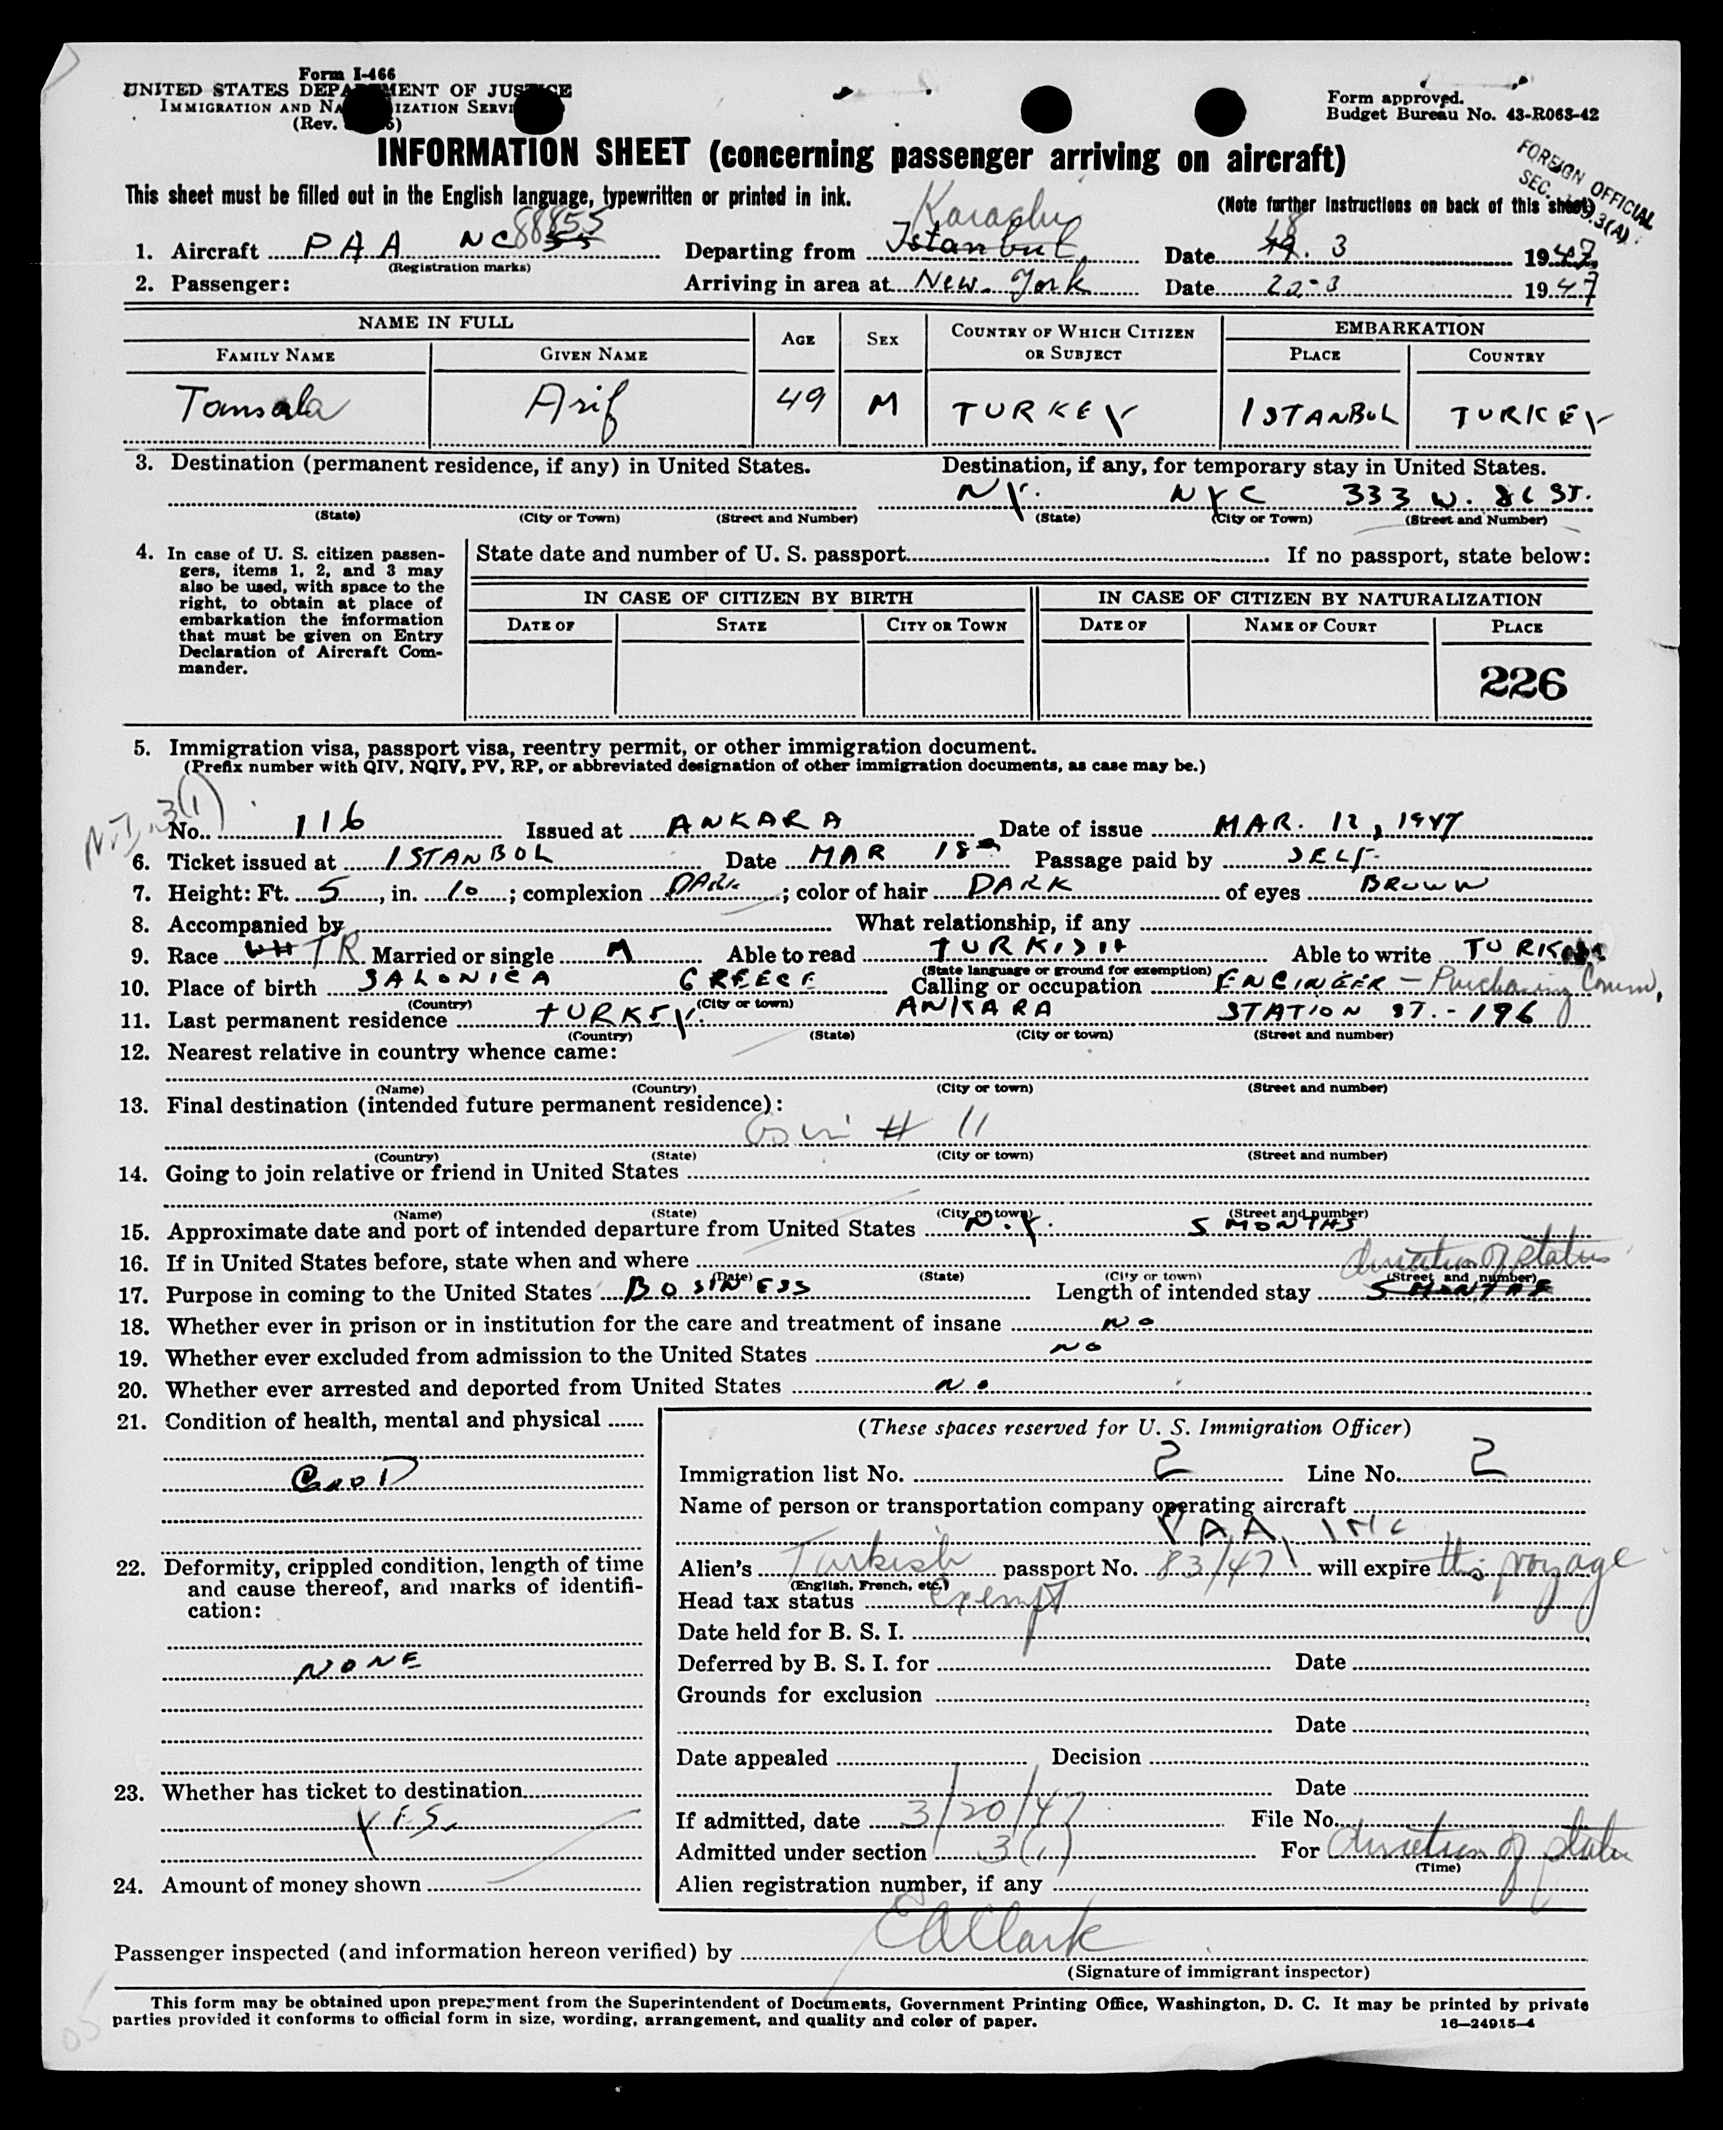 Form I-466
UNITED STATES DEPARTMENT OF JUSTICE
IMMIGRATION AND NATURALIZATION SERVICE
(Rev.
Form approved.
Budget Bureau No. 43-R068-42
INFORMATION SHEET (concerning passenger arriving on aircraft)
FOREIGN OFFICIAL
SEC.
This sheet must be filled out in the English language, typewritten or printed in ink.
(Note further instructions on back of this sheet)
1. Aircraft PAA NC 88855 Departing from Karachi Istanbul Date 18 19. 3 1947
(Registration marks)
2. Passenger: Arriving in area at New York Date 20-3 1947
NAME IN FULL
FAMILY NAME GIVEN NAME AGE SEX COUNTRY OF WHICH CITIZEN OR SUBJECT EMBARKATION PLACE COUNTRY
Arif 49 M TURKEY ISTANBUL TURKEY
3. Destination (permanent residence, if any) in United States. Destination, if any, for temporary stay in United States.
NY. NYC 333 W. 86 ST.
(State) (City or Town) (Street and Number) (State) (City or Town) (Street and Number)
4. In case of U. S. citizen passengers, items 1, 2, and 3 may also be used, with space to the right, to obtain at place of embarkation the information that must be given on Entry Declaration of Aircraft Commander.
State date and number of U. S. passport If no passport, state below:
IN CASE OF CITIZEN BY BIRTH IN CASE OF CITIZEN BY NATURALIZATION
DATE OF STATE CITY OR TOWN DATE OF NAME OF COURT PLACE
226
5. Immigration visa, passport visa, reentry permit, or other immigration document.
(Prefix number with QIV, NQIV, PV, RP, or abbreviated designation of other immigration documents, as case may be.)
3(1)
No. 116 Issued at ANKARA Date of issue MAR. 12, 1947
6. Ticket issued at ISTANBOL Date MAR 18 Passage paid by SELF
7. Height: Ft. 5, in. 10; complexion DARK; color of hair DARK of eyes BROWN
8. Accompanied by What relationship, if any
9. Race WH TR Married or single M Able to read TURKISH Able to write TURKISH
(State language or ground for exemption)
10. Place of birth SALONICA GREECE Calling or occupation ENGINEER - Purchasing Comm.
(Country) (City or town)
11. Last permanent residence TURKEY. ANKARA STATION ST. - 196
(Country) (State) (City or town) (Street and number)
12. Nearest relative in country whence came:
(Name) (Country) (City or town) (Street and number)
13. Final destination (intended future permanent residence):
# 11
(Country) (State) (City or town) (Street and number)
14. Going to join relative or friend in United States
(Name) (State) (City or town) (Street and number)
15. Approximate date and port of intended departure from United States N.Y. 5 MONTHS
16. If in United States before, state when and where
(Date) (State) (City or town) (Street and number)
duration of status
17. Purpose in coming to the United States BOSINESS Length of intended stay 5 MONTHS
18. Whether ever in prison or in institution for the care and treatment of insane NO
19. Whether ever excluded from admission to the United States NO
20. Whether ever arrested and deported from United States NO
21. Condition of health, mental and physical
GOOD
22. Deformity, crippled condition, length of time and cause thereof, and marks of identification:
NONE
23. Whether has ticket to destination
YES.
24. Amount of money shown
(These spaces reserved for U. S. Immigration Officer)
Immigration list No. 2 Line No. 2
Name of person or transportation company operating aircraft
PAA, INC
Alien's Turkish passport No. 83/47 will expire this voyage
(English, French, etc.)
Head tax status Exempt
Date held for B. S. I.
Deferred by B. S. I. for Date
Grounds for exclusion
Date
Date appealed Decision
Date
If admitted, date 3/20/47 File No.
Admitted under section 3(1) For duration of status
(Time)
Alien registration number, if any
Passenger inspected (and information hereon verified) by EAClark
(Signature of immigrant inspector)
This form may be obtained upon prepayment from the Superintendent of Documents, Government Printing Office, Washington, D. C. It may be printed by private
parties provided it conforms to official form in size, wording, arrangement, and quality and color of paper.
16—24915-4